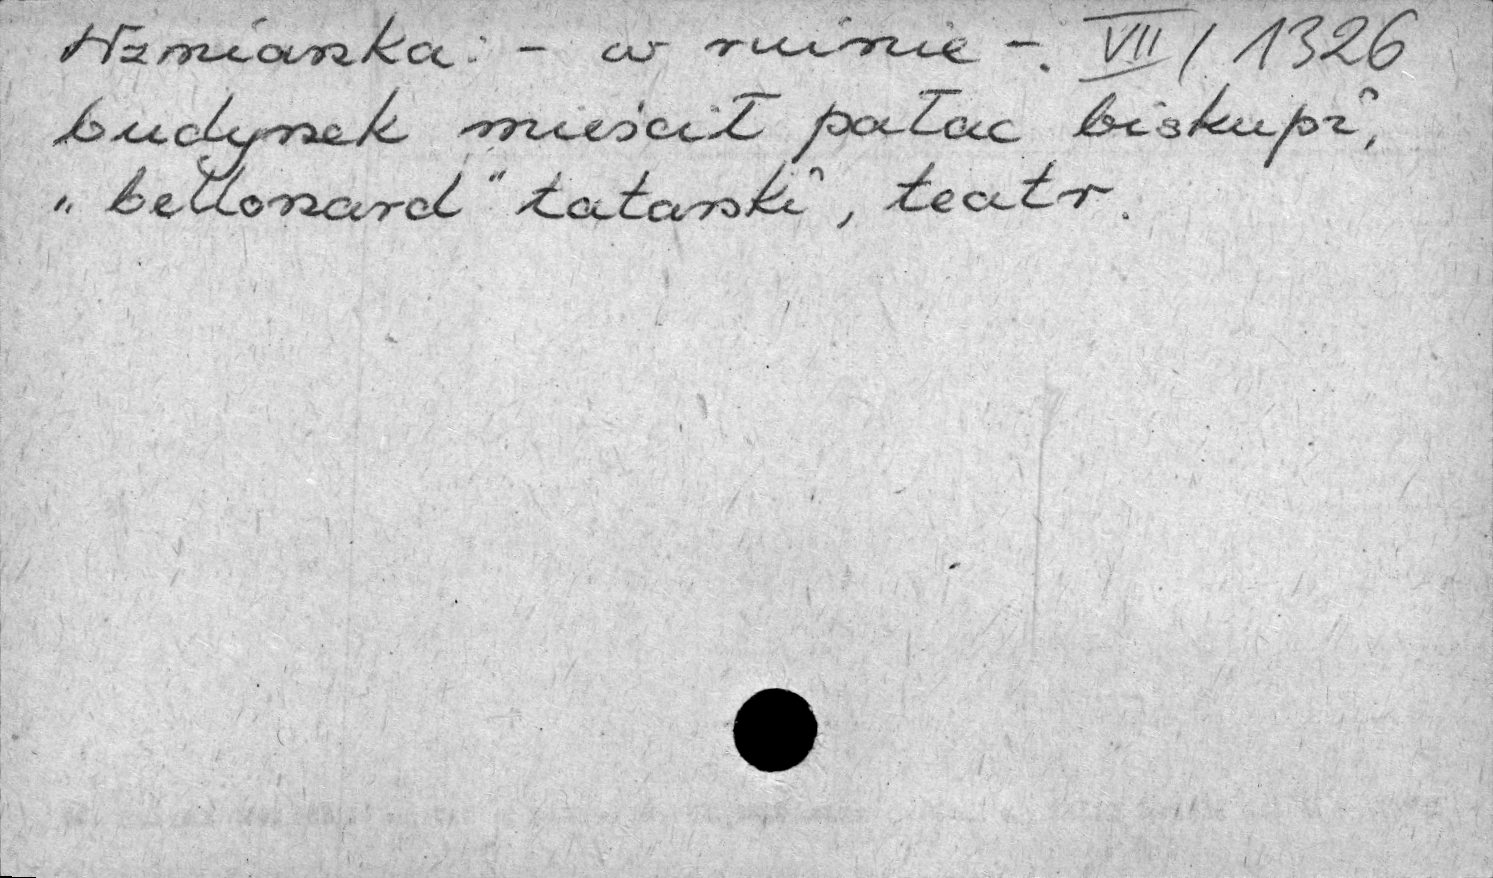 Wzmianka: - w ruinie -. VII / 1326
budynek mieścił pałac biskupi,
„bellonard" tatarski, teatr.